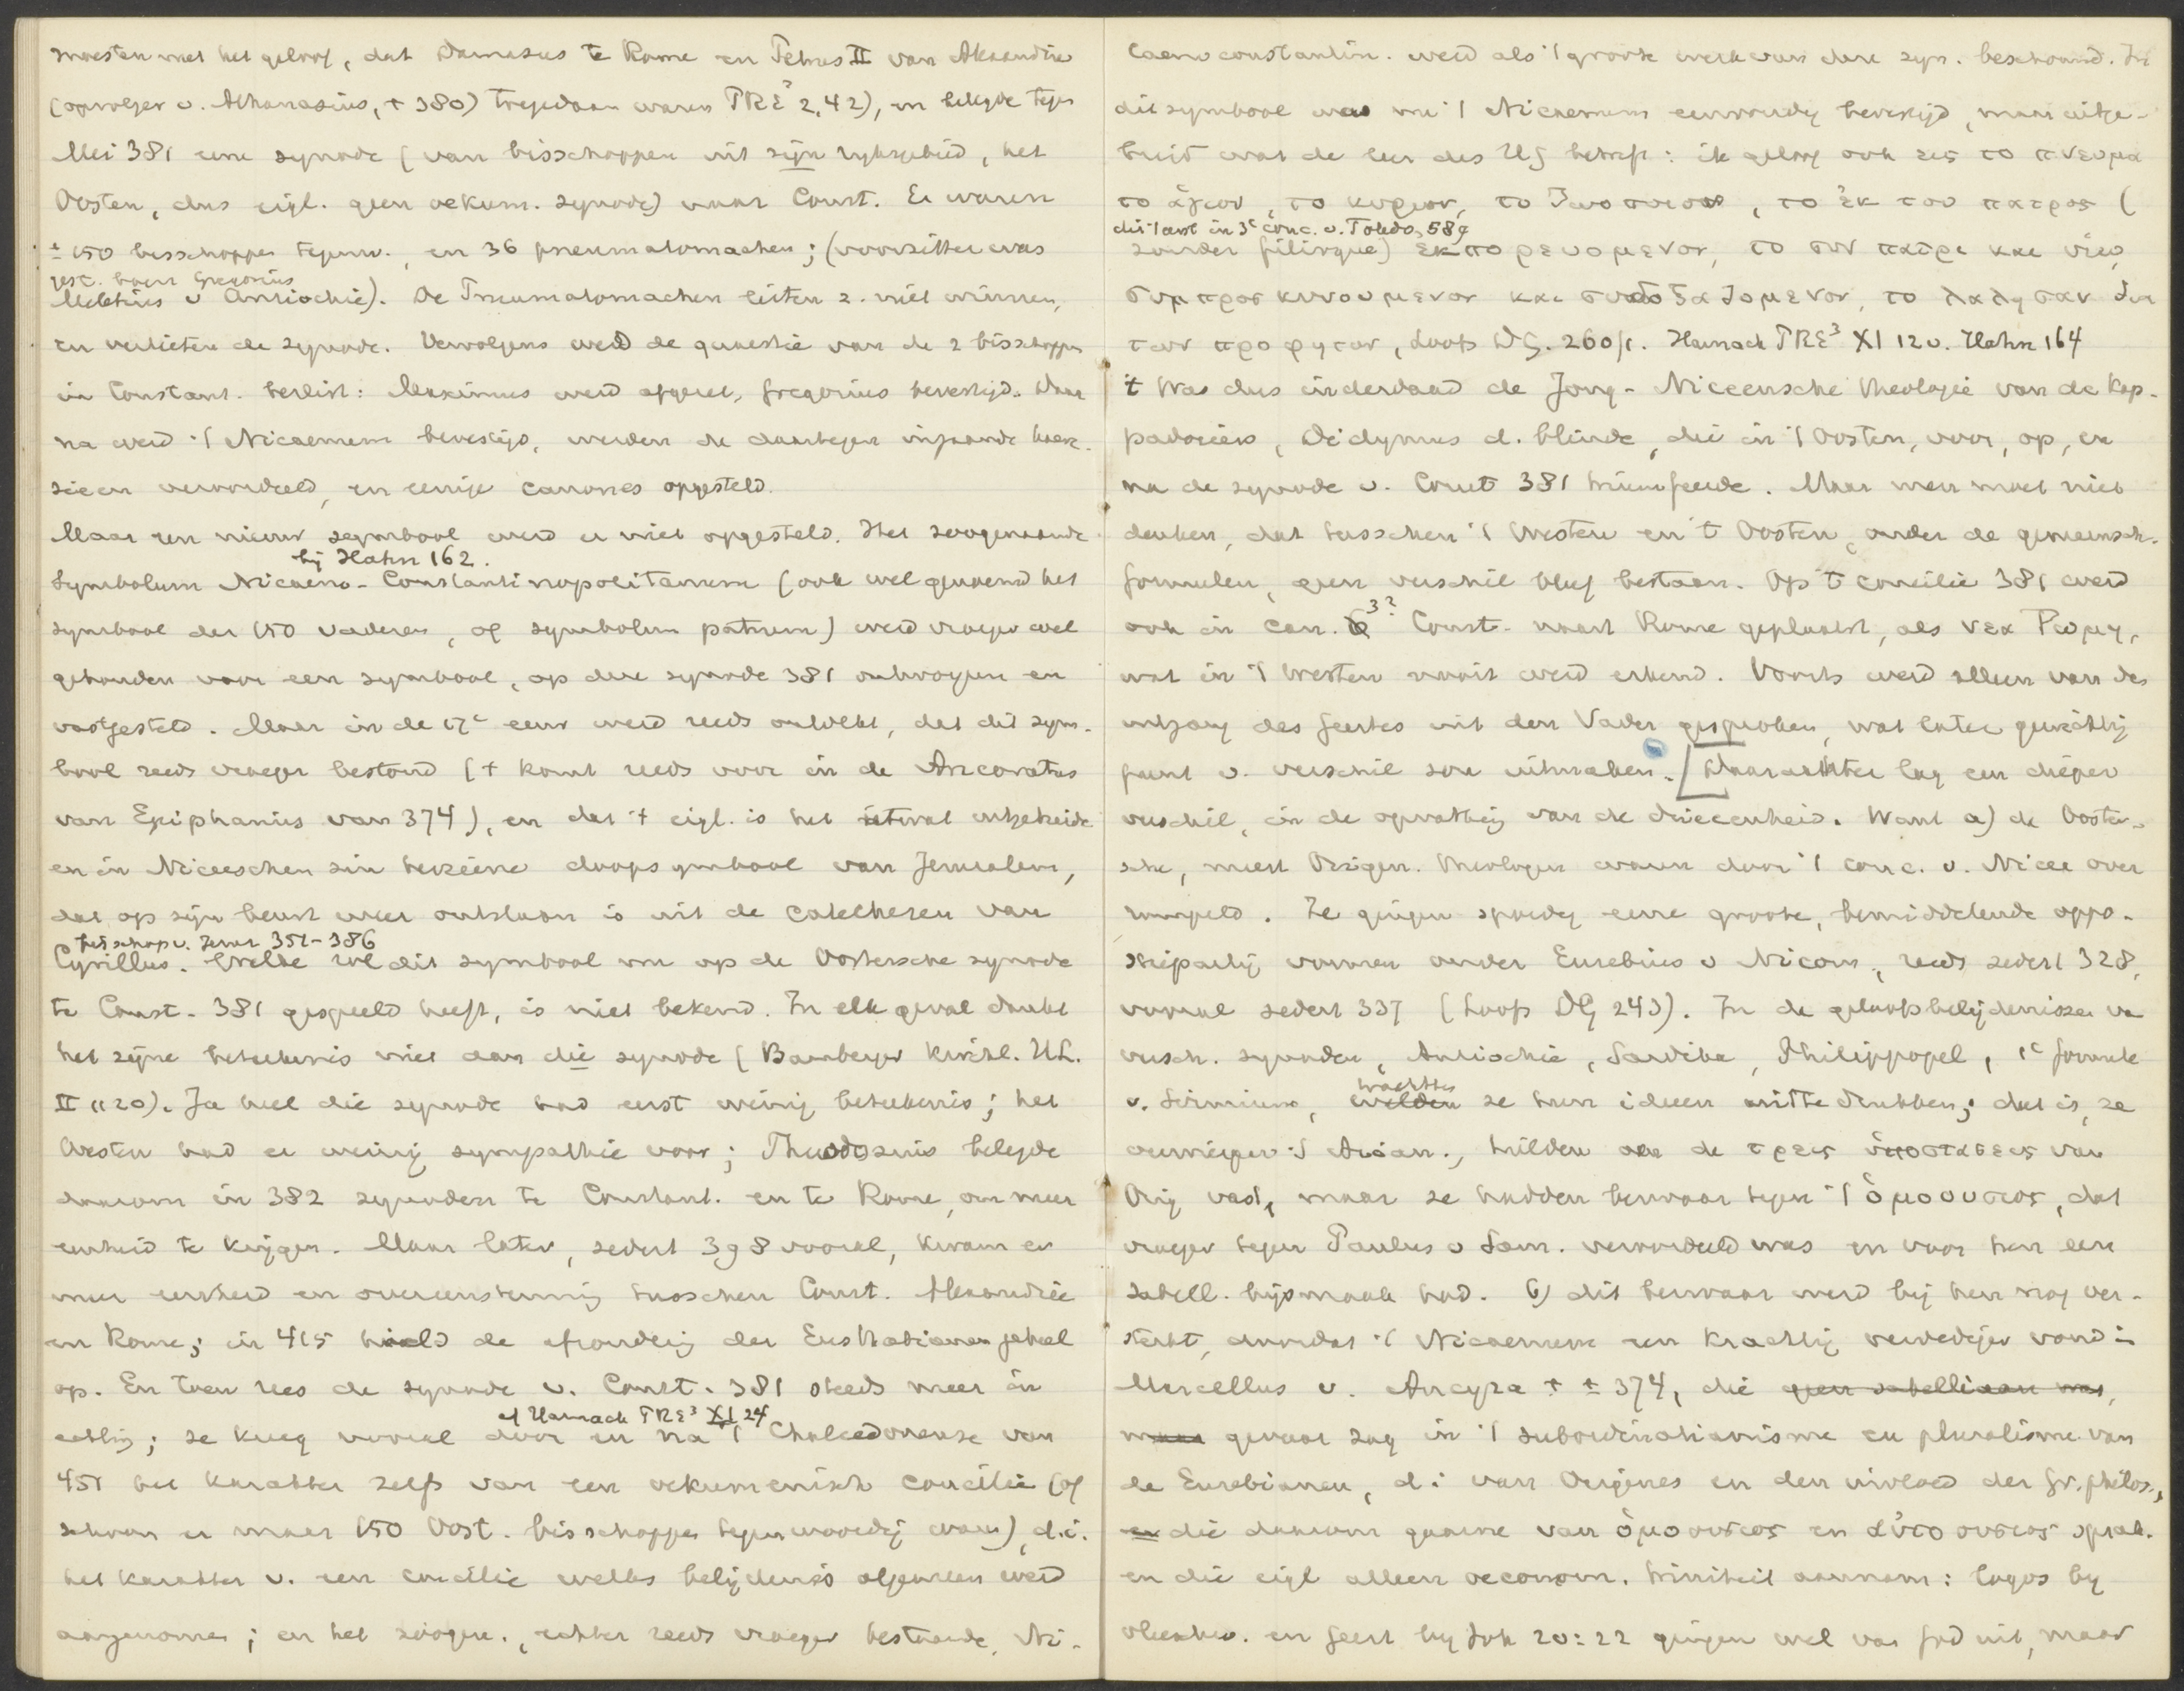 moesten met het geloof, dat Damasus te Rome en Petrus II van Alexandrie
(opvolger v. Athanasius, † 380) toegedaan waren PRE³ 2,42), en belegde tegen
Mei 381 eene synode (van bisschoppen uit zijn rijksgebied, het
Oosten, dus eigl. geen oekum. synode) naar Const. Er waren
± 150 bisschoppen tegenw., en 36 pneumatomachen; (voorzitter was
gest. Gregorius
Meletius v Antiochie). De Pneumatomachen lieten z. niet winnen,
en verlieten de synode. Vervolgens werd de quaestie van de 2 bisschoppen
in Constant. beslist: Maximus werd afgezet, Gregorius bevestigd. Daar
na werd 't Nicaenum bevestigd, werden de daartegen ingaande haere-
sieën veroordeeld, en eenige canones opgesteld.
Maar een nieuw symbool werd er niet opgesteld. Het zoogenaamde
bij Hahn 162.
Symbolum Nicaeno-Constantinopolitanum (ook wel genoemd het
symbool der 150 vaderen, of symbolum patrum) werd vroeger wel
gehouden voor een symbool, op deze synode 381 ontworpen en
vastgesteld. Maar in de 17e eeuw werd reeds ontdekt, dat dit sym-
bool reeds vroeger bestond ('t komt reeds voor in de Ancoratus
van Epiphanius van 374), en dat 't eigl. is het ietwat uitgebreide
en in Niceeschen zin herziene doopsymbool van Jerusalem,
dat op zijn beurt weer ontstaan is uit de catechesen van
bisschop v. Jerus 351-386
Cyrillus. Welke rol dit symbool nu op de Oostersche synode
te Const. 381 gespeeld heeft, is niet bekend. In elk geval dankt
het zijne beteekenis niet aan die synode (Bamberger Kirchl. UL.
II 1120). Ja heel die synode had eerst weinig beteekenis; het
Westen had er weinig sympathie voor; Theodosius belegde
daarom in 382 synoden te Constant. en te Rome, om meer
eenheid te krijgen. Maar later, sedert 398 vooral, kwam er
meer eenheid en overeenstemming tusschen Const. Alexandrië
en Rome; in 415 hield de afzondering der Eustathianen geheel
op. En toen rees de synode v. Const. 381 steeds meer in
cf Harnack PRE³ XI 24
achting; ze kreeg vooral door en na 't Chalcedonense van
451 het karakter zelfs van een oekumenisch concilie (of
schoon er maar 150 Oost. bisschoppen tegenwoordig waren), d.i.
het karakter v. een concilie welks belijdenis algemeen werd
aangenomen; en het zoogen., echter reeds vroeger bestaande, Ni-
caenoconstantin. werd als 't groote werk van deze syn. beschouwd. In
dit symbool was nu 't Nicaenum eenvoudig bevestigd, maar uitge-
breid wat de leer des HG betreft: ik geloof ook εις το πνευμα
το ἁγιον, το κυριον, το ζωοποιον, το ἐκ του πατρος (
dit laatst in 3e conc. v. Toledo, 589
zonder filioque) ἐκπορευομενον, το συν πατρι και υἱῳ
συμπροσκυνουμενον και συνδοξαζομενον, το λαλησαν δια
των προφητων, Loofs DG. 260 f. Harnack PRE³ XI 12 v. Hahn 164
't Was dus inderdaad de Jong-Niceensche theologie van de Kap-
padociërs, Didymus d. blinde, die in 't Oosten, voor, op, en
na de synode v. Const 381 triumfeerde. Maar men moet niet
denken, dat tusschen 't Westen en 't Oosten, onder de gemeensch.
formulen, geen verschil bleef bestaan. Op 't concilie 381 werd
ook in can. 3? Const. naast Rome geplaatst, als νεα Ρωμη,
wat in 't Westen nooit werd erkend. Voorts werd alleen van den
uitgang des Geestes uit den Vader gesproken, wat later gewichtig
punt v. verschil zou uitmaken. [Daarachter lag een dieper
verschil, in de opvatting van de drieeenheid. Want a) de Ooster-
sche, meest Origen. theologen waren door 't conc. v. Nicea over
rompeld. Ze gingen spoedig eene groote, bemiddelende oppo-
sitiepartij vormen onder Eusebius v Nicom., reeds sedert 328,
vooral sedert 337 (Loofs DG 243). In de geloofsbelijdenissen van
versch. synoden, Antiochië, Sardika, Philippopel, 1e formule
v. Sirmium, trachtten ze hun ideeen uit te drukken; dat is, ze
verwierpen 't Arian., hielden de τρεις ὑποστασεις van
Orig vast, maar ze hadden bezwaar tegen 't ὁμοουσιος, dat
vroeger tegen Paulus v Sam. veroordeeld was en voor hen een
Sabell. bijsmaak had. b) dit bezwaar werd bij hen nog ver-
sterkt, doordat 't Nicaenum een krachtig verdediger vond in
Marcellus v. Ancyra † ± 374, die geen sabelliaan was,
maar gevaar zag in 't subordinatianisme en pluralisme van
de Eusebianen, d.i van Origenes en den invloed der Gr. philos.,
en die daarom gaarne van ὁμοουσιος en αὐτοουσιος sprak.
en die eigl alleen oeconom. triniteit aannam: Logos bij
vleeschw. en Geest bij Joh 20:22 gingen wel van God uit, maar